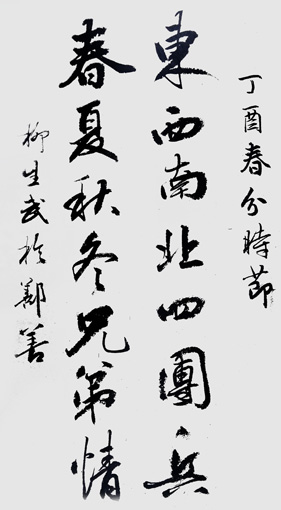 丁酉春分時節
東西南北四團兵
春夏秋冬兄弟情
柳生武於鄯善